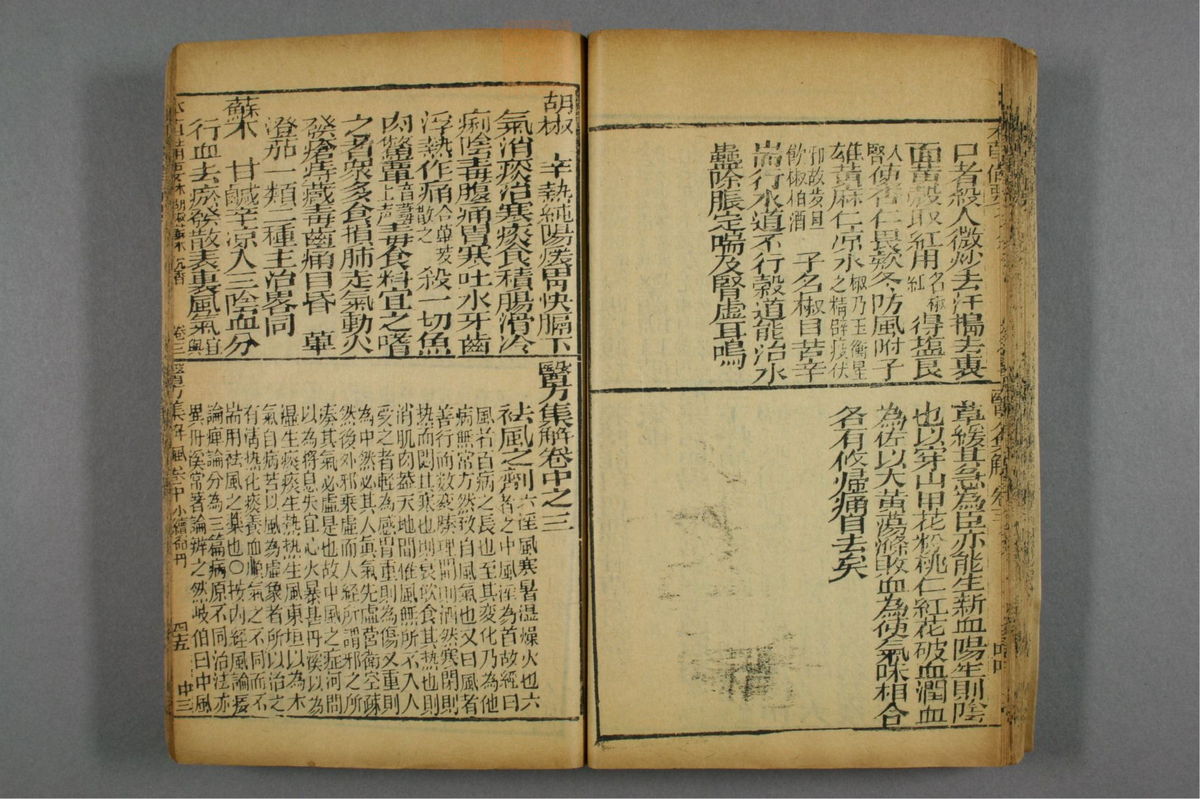 口者殺人微炒去汗搗去裏
面黃殼取紅用名椒紅得鹽良
人腎使杏仁畏款冬防風附子
雄黃麻仁凉水椒乃玉衡星之精辟疫伏
邪故歲旦飲椒柏酒 子名椒目苦辛
耑行水道不行穀道能治水
蠱除脹定喘及腎虛耳鳴
草緩其急為臣亦能生新血陽生則陰
也以穿山甲花粉桃仁紅花破血潤血
為佐以大黃蕩滌敗血為使氣味相合
各有攸歸痛自去矣
胡椒 辛熱純陽煖胃快膈下
氣消痰治寒痰食積腸滑冷
痢陰毒腹痛胃寒吐水牙齒
浮熱作痛合蓽茇散之 殺一切魚
肉鱉蕈毒食料宜之嗜
之者衆多食損肺走氣動火
發瘡痔臟毒齒痛目昏 蓽
澄茄一類二種主治畧同
蘇木 甘鹹辛凉入三陰血分
行血去瘀發散表裏風氣宜與
卷三
醫方集解卷中之三
祛風之劑六淫風寒暑濕燥火也六
者之中風淫為首故經曰
風者百病之長也至其變化乃為他
病無常方然致自風氣也又曰風者
善行而數變腠理開則洒然寒閉則
熱而悶其寒也則衰飲食其熱也則
消肌肉蓋天地間惟風無所不入人
受之者輕為感冒重則為傷又重則
為中然必其人眞氣先虛營衛空疎
然後外邪乘虛而入經所謂邪之所
湊其氣必虛是也故中風之症河間
以為將息失宜心火暴甚丹溪以為
濕生痰痰生熱熱生風東垣以為本
氣自病若以風為虛象者所以治之
有清熱化痰養血順氣之不同而不
耑用祛風之藥也〇按內經風論痿
論痺論分為三篇病原不同治法亦
異丹溪常著論辨之然岐伯曰中風
四十五 中三